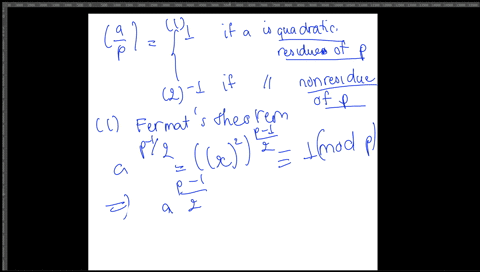 (a/p) = { (1) 1 if a is quadratic
residues of p
(2) -1 if 〃 nonresidue
of p
(1) Fermat's theorem
a^(p-1/2) = ((x)^2)^((p-1)/2) ≡ 1 (mod p)
⇒ a^((p-1)/2)